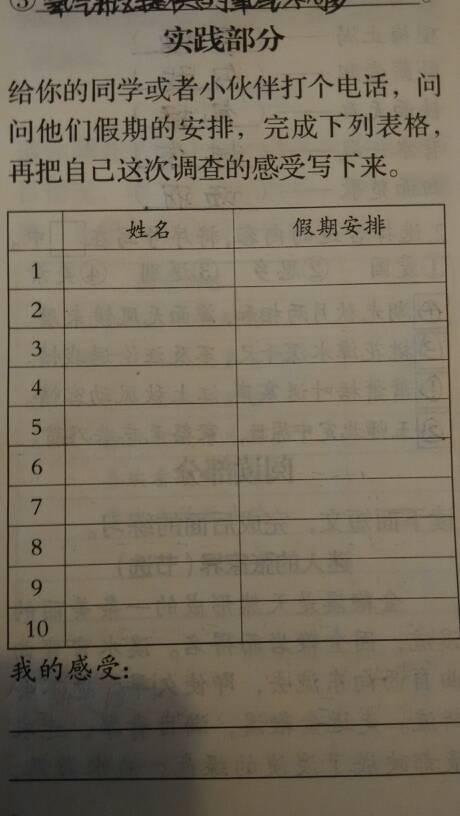 实践部分
给你的同学或者小伙伴打个电话，问
问他们假期的安排，完成下列表格，
再把自己这次调查的感受写下来。
姓名 假期安排
1
2
3
4
5
6
7
8
9
10
我的感受：